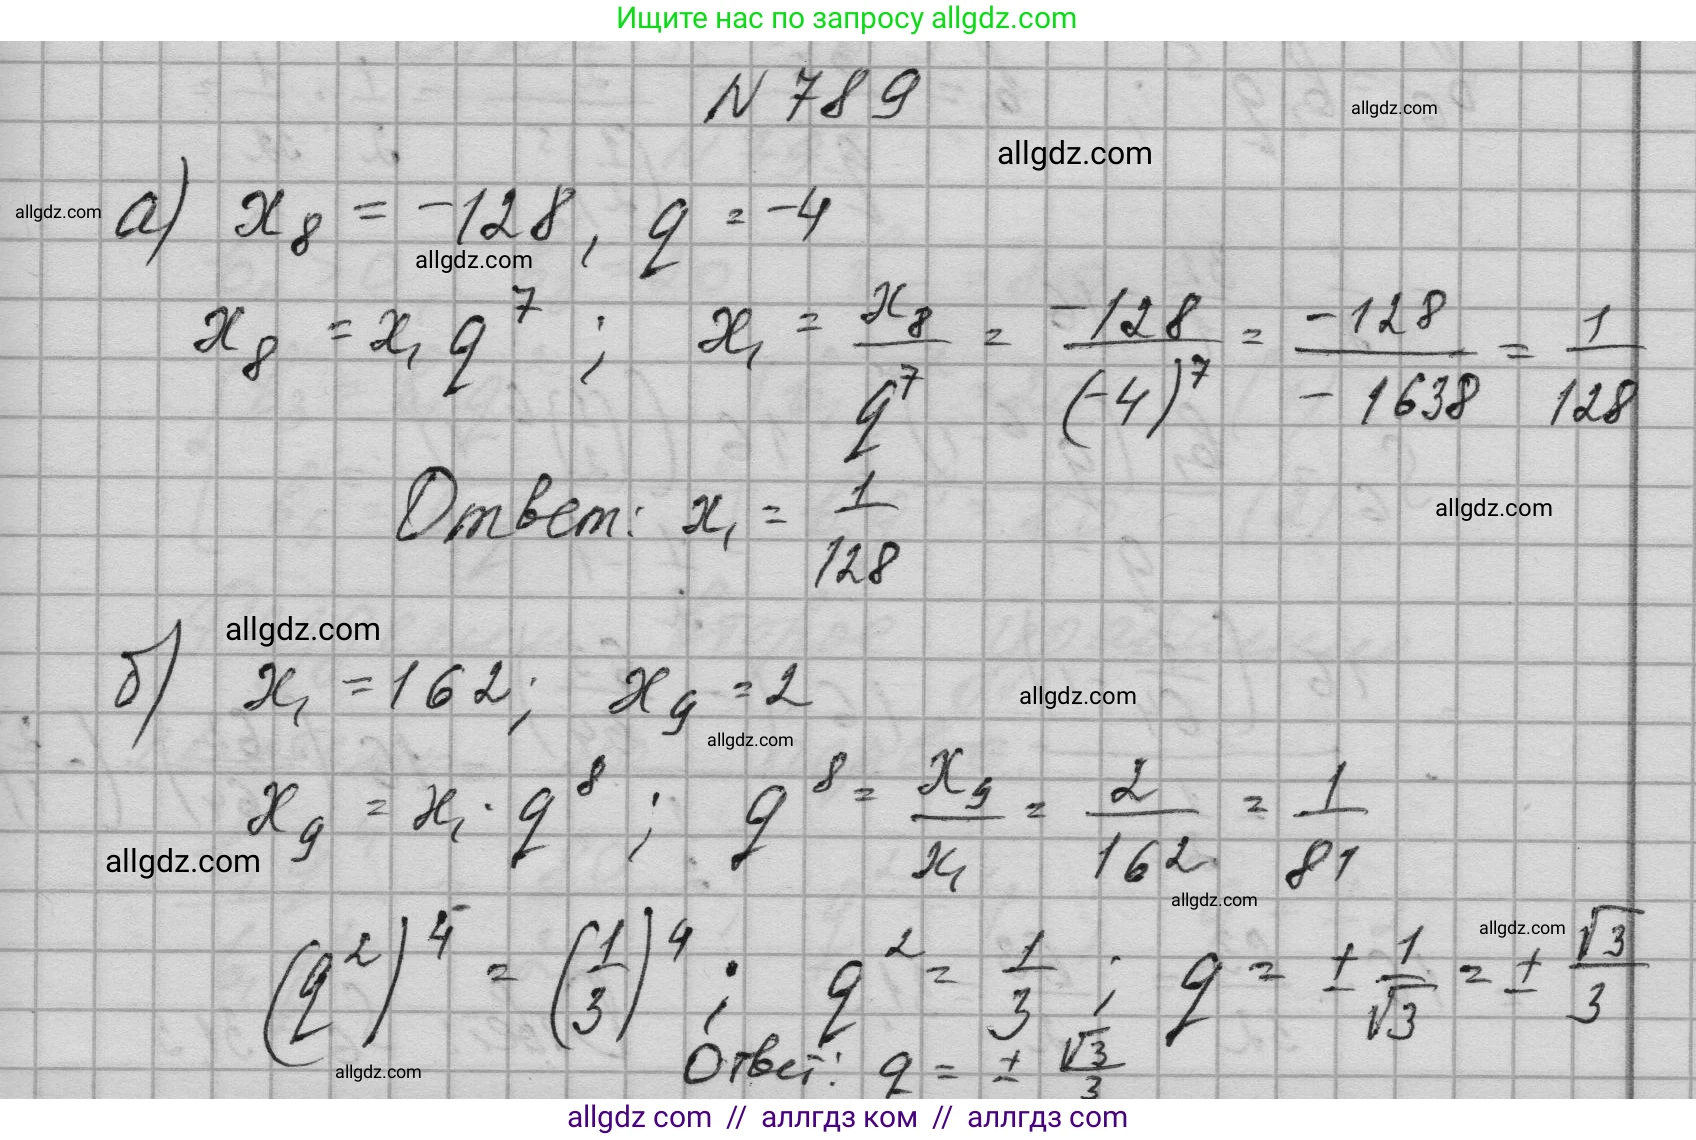 Ищите нас по запросу allgdz.com
N 789
allgdz.com
allgdz.com
allgdz.com
а) x₈ = -128, q = -4
allgdz.com
x₈ = x₁ q⁷ ; x₁ = x₈/q⁷ = -128/(-4)⁷ = -128/-1638 = 1/128
Ответ: x₁ = 1/128
allgdz.com
allgdz.com
б) x₁ = 162; x₉ = 2
allgdz.com
allgdz.com
x₉ = x₁ · q⁸ ; q⁸ = x₉/x₁ = 2/162 = 1/81
allgdz.com
allgdz.com
allgdz.com
(q²)⁴ = (1/3)⁴ ; q² = 1/3 ; q = ± 1/√3 = ± √3/3
Ответ: q = ± √3/3
allgdz.com
allgdz.com // аллгдз ком // аллгдз.com